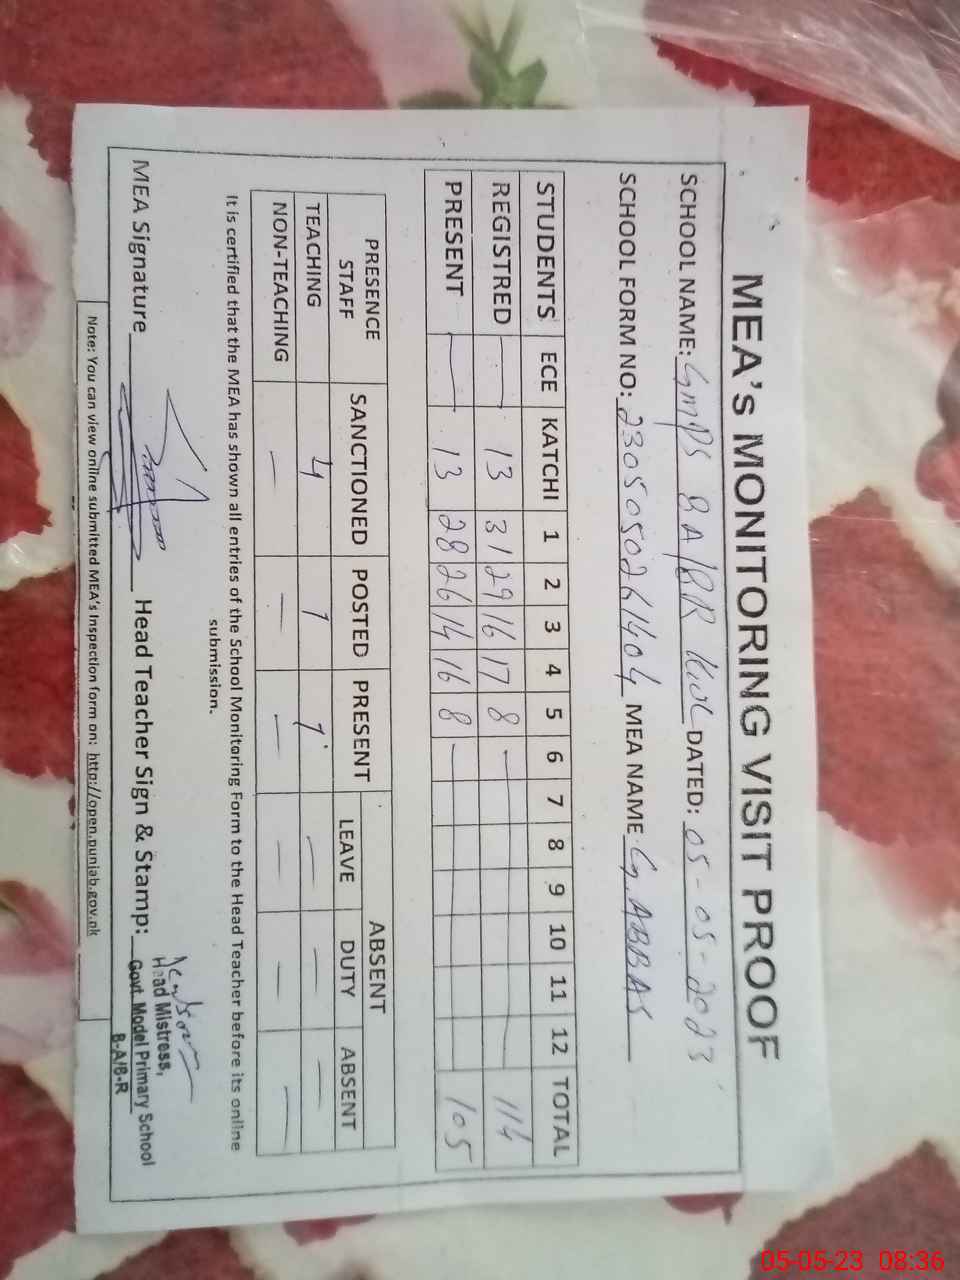 MEA's MONITORING VISIT PROOF
SCHOOL NAME: GMPS 8 A/8R KWL DATED: 05-05-2023
SCHOOL FORM NO: 2305050261404 MEA NAME: G. ABBAS
STUDENTS ECE KATCHI 1 2 3 4 5 6 7 8 9 10 11 12 TOTAL
REGISTRED — 13 31 29 16 17 8 — 114
PRESENT — 13 28 26 14 16 8 — 105
PRESENCE STAFF SANCTIONED POSTED PRESENT ABSENT
LEAVE DUTY ABSENT
TEACHING 4 1 1 — — —
NON-TEACHING — — — — — —
It is certified that the MEA has shown all entries of the School Monitoring Form to the Head Teacher before its online
submission.
MEA Signature Head Teacher Sign & Stamp:
Head Mistress,
Govt. Model Primary School
8-A/8-R
Note: You can view online submitted MEA's Inspection form on: http://open.punjab.gov.pk
05-05-23 08:36